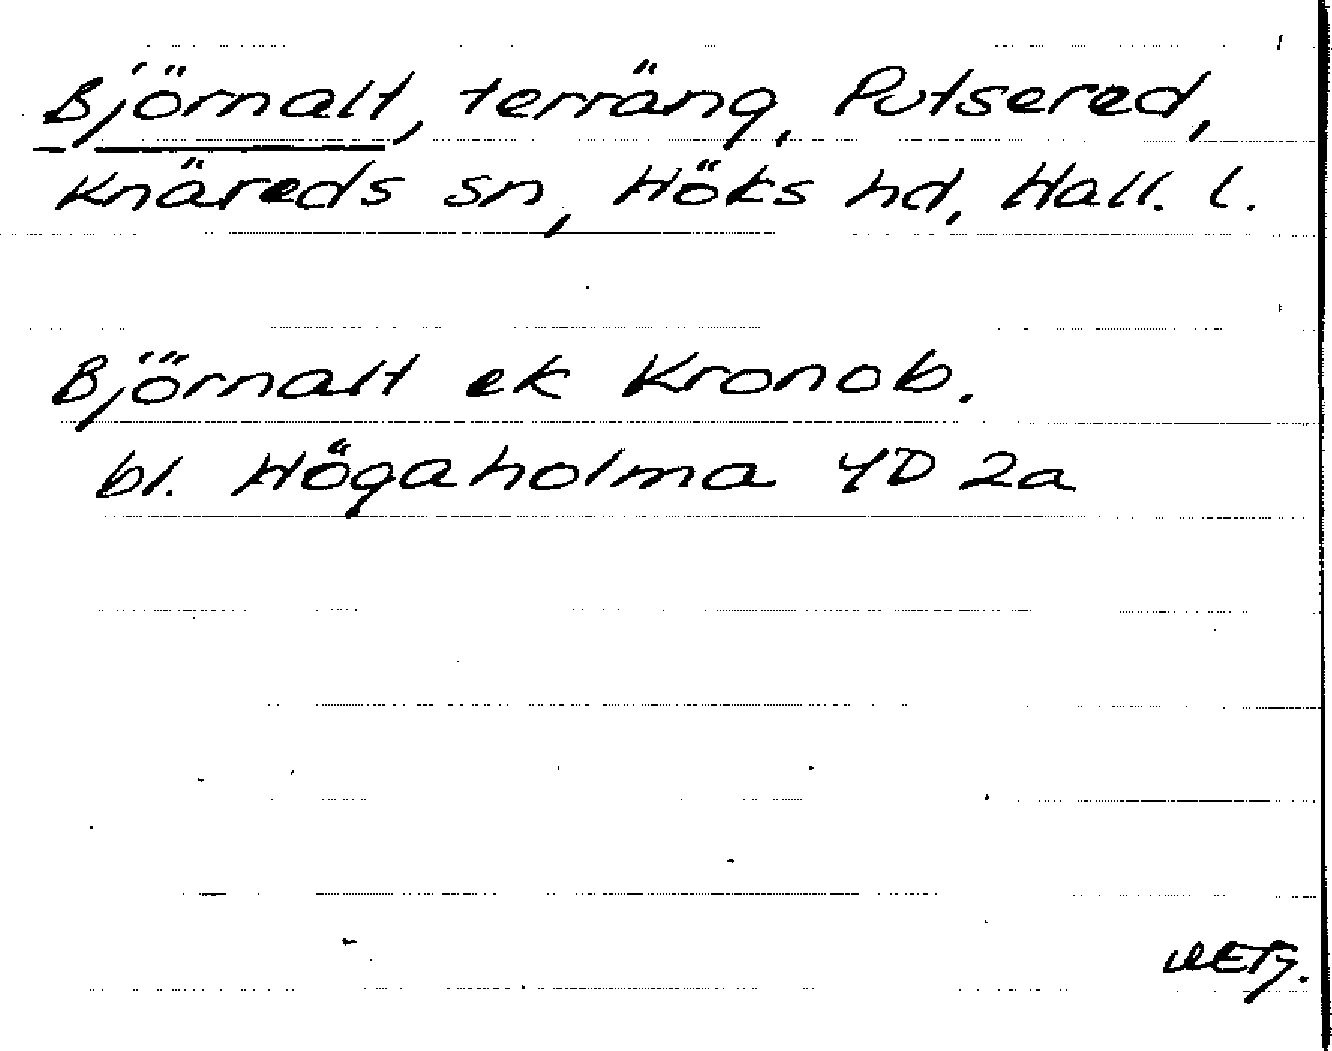 Björnalt, terräng, Putsered,
Knäreds sn, Höks hd, Hall. l.
Björnalt ek Kronob.
bl. Högaholma 4D 2a